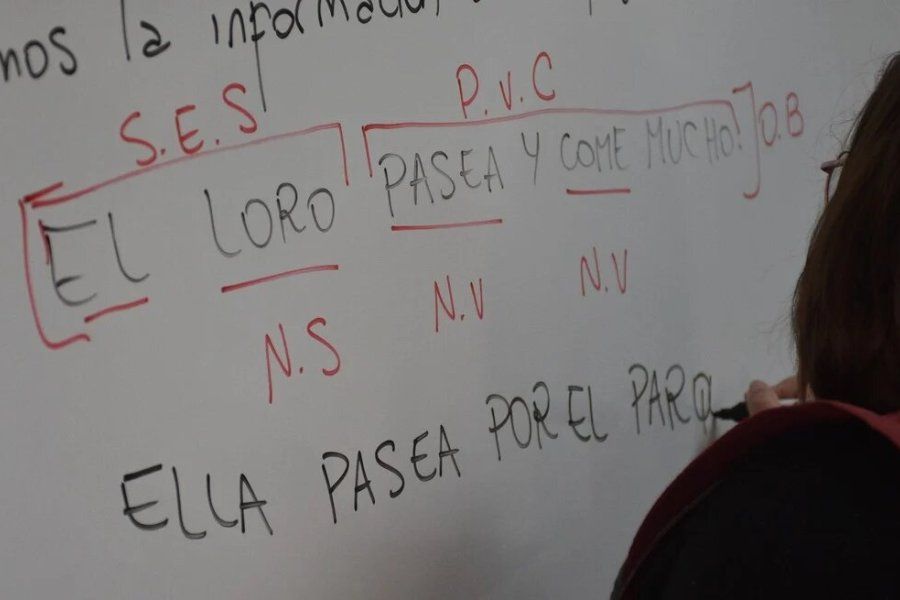 mos la información
S.E.S P.v.C
EL LORO PASEA Y COME MUCHO. O.B
N.S N.V N.V
ELLA PASEA POR EL PARQ